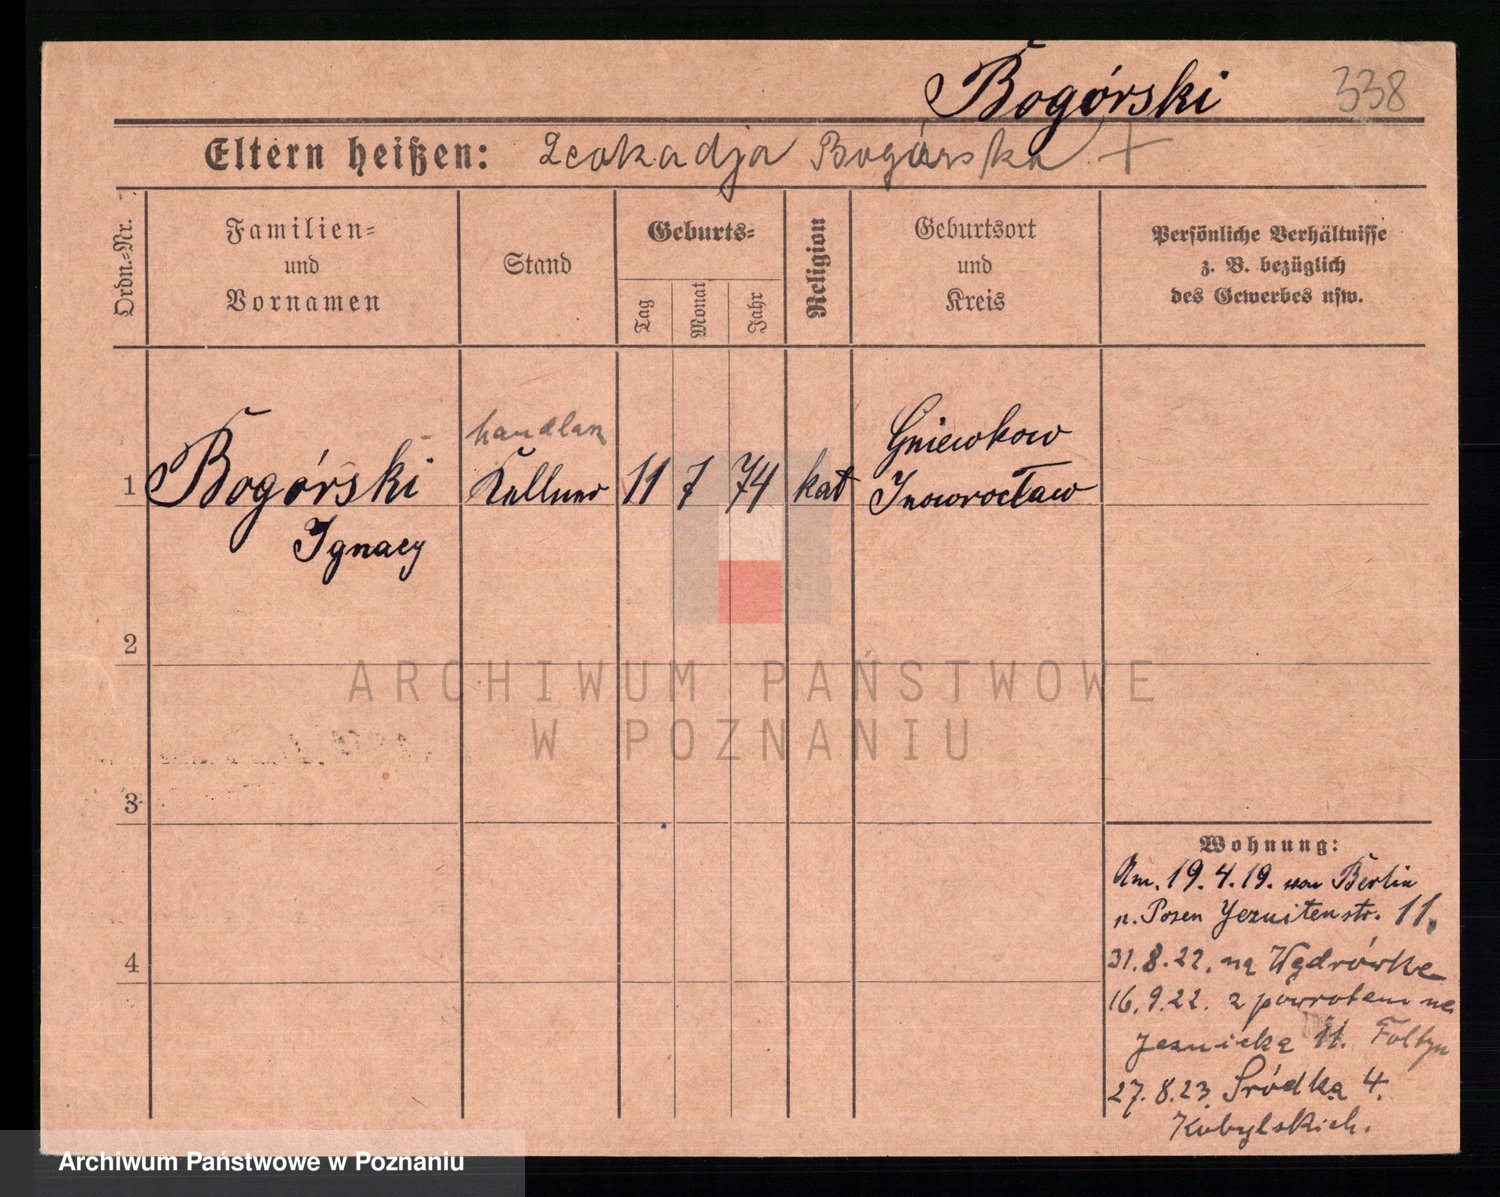 Bogórski 338
Eltern heißen: Leokadja Bogórska +
Ordn.-Nr.
Familien-
und
Vornamen
Stand
Geburts-
Tag
Monat
Jahr
Religion
Geburtsort
und
Kreis
Persönliche Verhältnisse
z. B. bezüglich
des Gewerbes usw.
handlarz
1 Bogórski Kellner 11 7 74 kat Gniewkow
Inowrocław
Ignacy
2
ARCHIWUM PAŃSTWOWE
W POZNANIU
3
4
Wohnung:
Am. 19.4.19. von Berlin
n. Posen Jezuitenstr. 11.
31.8.22. na Wędrówkę
16.9.22. z powrotem na
Jezuicką 11. Foltyn
27.8.23. Śródka 4.
Kobylskich.
Archiwum Państwowe w Poznaniu